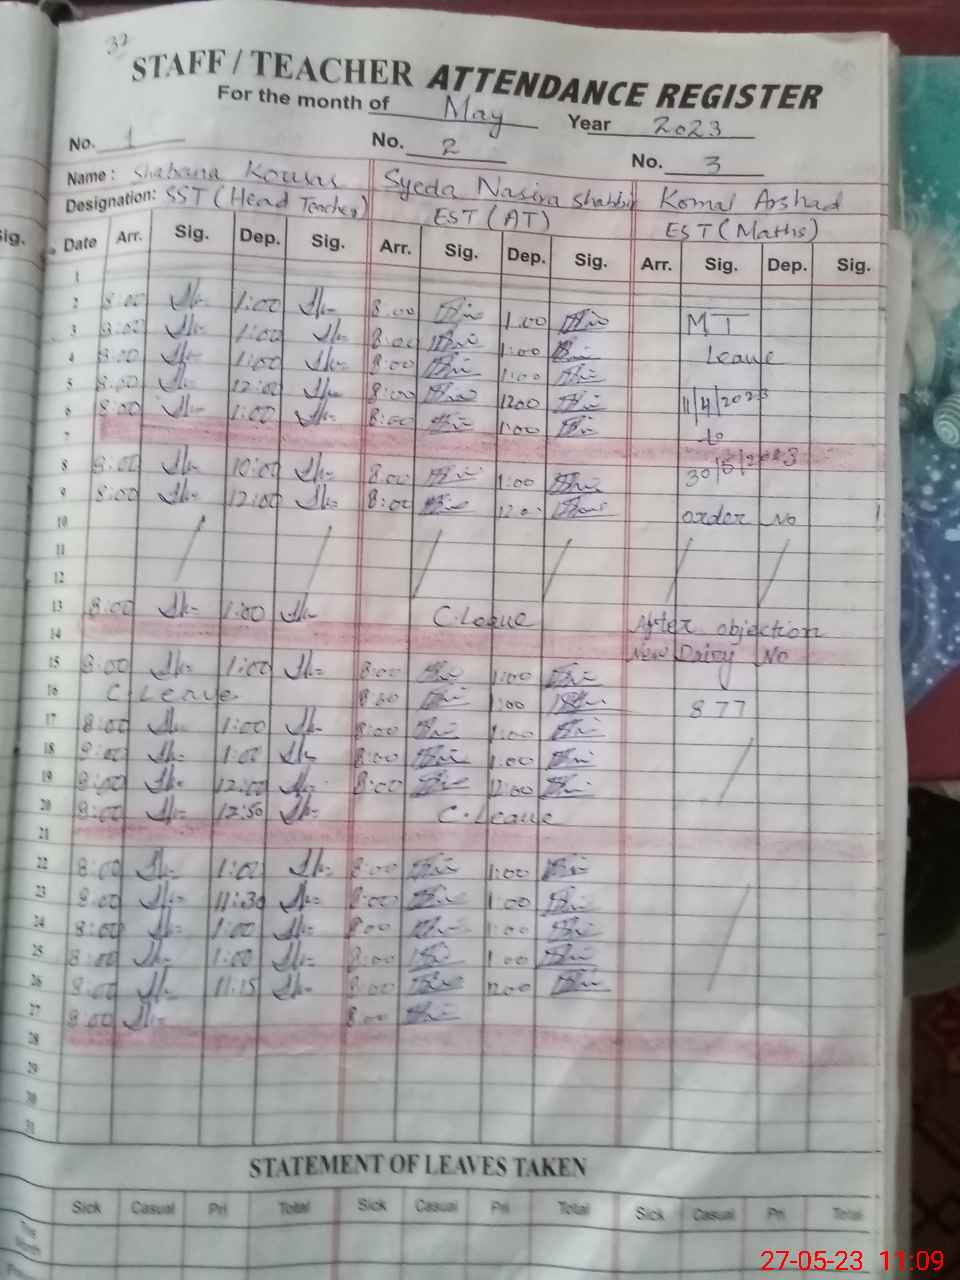 32
STAFF / TEACHER ATTENDANCE REGISTER
For the month of May Year 2023
No. 1 No. 2 No. 3
Name: Shabana Kousar Syeda Nasira Shabbir Komal Arshad
Designation: SST (Head Teacher) EST (AT) EST (Maths)
Date Arr. Sig. Dep. Sig. Arr. Sig. Dep. Sig. Arr. Sig. Dep. Sig.
1
2 8:00 1:00 8:00 1:00 MT
3 8:00 1:00 8:00 1:00 Leave
4 8:00 1:00 8:00 1:00
5 8:00 12:00 8:00 1200 11/4/2023
6 8:00 1:00 8:00 1:00 to
7
8 8:00 10:00 8:00 1:00 30/5/2023
9 8:00 12:00 8:00 order No
10
11
12
13 8:00 1:00 C.Leave After objection
14 New Dairy No
15 8:00 1:00 8:00 1:00
16 C Leave 8:00 1:00 877
17 8:00 1:00 8:00 1:00
18 8:00 1:00 8:00 1:00
19 8:00 12:00 8:00 12:00
20 8:00 12:50 C.Leave
21
22 8:00 1:00 8:00 1:00
23 8:00 11:30 8:00 1:00
24 8:00 1:00 8:00 1:00
25 8:00 1:00 8:00 1:00
26 8:00 11:15 8:00 1200
27 8:00 8:00
28
29
30
31
STATEMENT OF LEAVES TAKEN
Sick Casual Pri Total Sick Casual Pri Total Sick Casual Pri Total
27-05-23 11:09